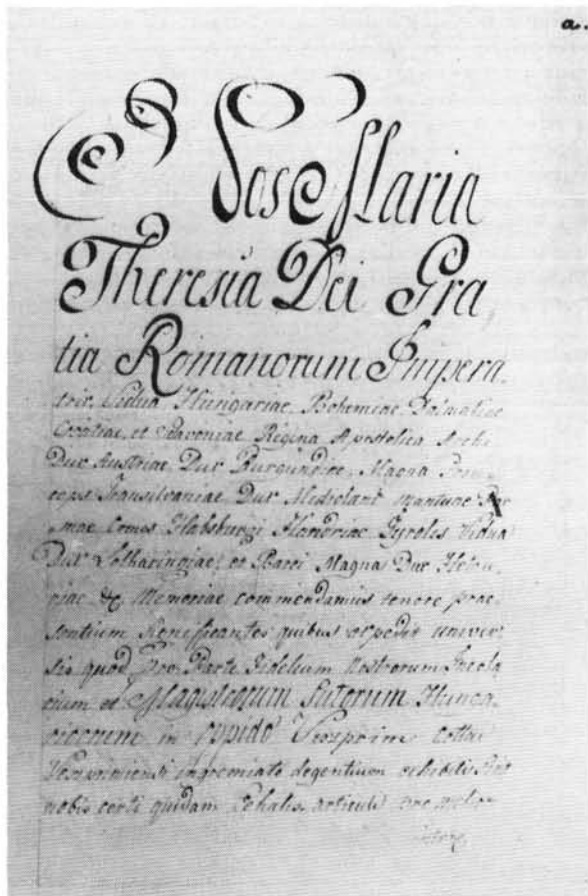 a.
Nos Maria
Theresia Dei Gra,
tia Romanorum Impera-
trix, Vidua Hungariae, Bohemiae, Dalmatiae
Croatiae, et Slavoniae Regina Apostolica Archi
Dux Austriae, Dux Burgundiae, Magna Prin-
ceps Transilvaniae, Dux Mediolani Mantuae Par
mae Comes Habsburgi Flandriae Tyrolis Vidua
Dux Lotharingiae, et Barri Magna Dux Hetru,
riae &c Memoriae commendamus tenore prae,
sentium significantes quibus expedit univer,
sis quod pro Parte Fidelium Nostrorum Incola
rum et Magistrorum Sutorum Hunga,
ricorum in oppido Veszprim Cottui
degentium exhibiti sint
nobis certi quidam Cehales articuli